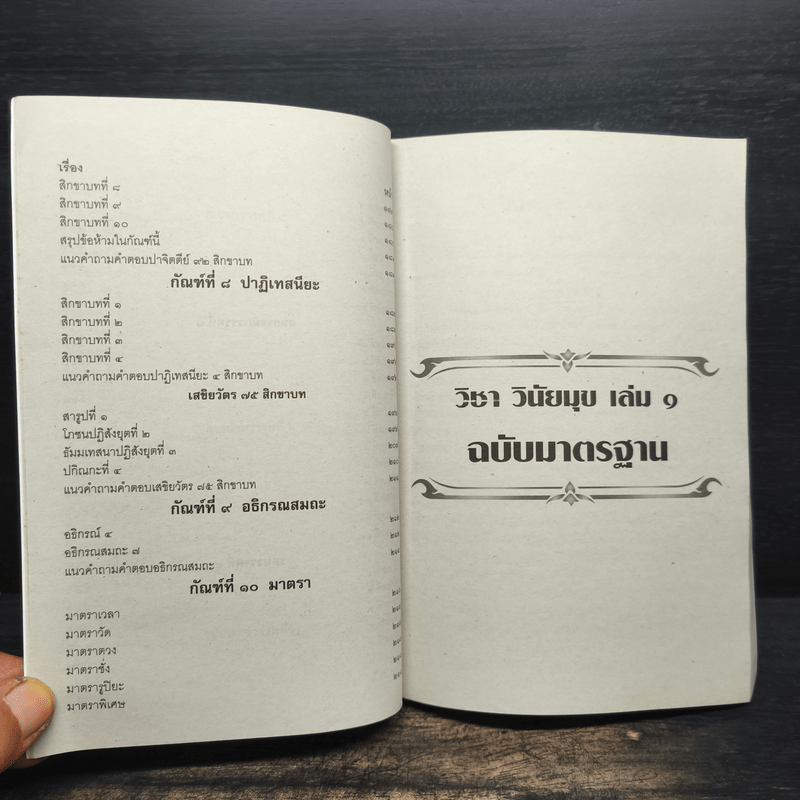 เรื่อง
สิกขาบทที่ ๘
สิกขาบทที่ ๙
สิกขาบทที่ ๑๐
สรุปข้อห้ามในกัณฑ์นี้
แนวคำถามคำตอบปาจิตตีย์ ๙๒ สิกขาบท
กัณฑ์ที่ ๘ ปาฏิเทสนียะ
สิกขาบทที่ ๑
สิกขาบทที่ ๒
สิกขาบทที่ ๓
สิกขาบทที่ ๔
แนวคำถามคำตอบปาฏิเทสนียะ ๔ สิกขาบท
เสขิยวัตร ๗๕ สิกขาบท
สารูปที่ ๑
โภชนปฏิสังยุตที่ ๒
ธัมมเทสนาปฏิสังยุตที่ ๓
ปกิณกะที่ ๔
แนวคำถามคำตอบเสขิยวัตร ๗๕ สิกขาบท
กัณฑ์ที่ ๙ อธิกรณสมถะ
อธิกรณ์ ๔
อธิกรณสมถะ ๗
แนวคำถามคำตอบอธิกรณสมถะ
กัณฑ์ที่ ๑๐ มาตรา
มาตราเวลา
มาตราวัด
มาตราตวง
มาตราชั่ง
มาตรารูปิยะ
มาตราพิเศษ
วิชา วินัยมุข เล่ม ๑
ฉบับมาตรฐาน